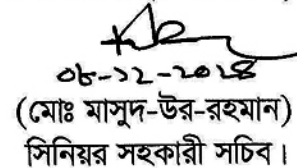 ০৮-১২-২০২৪
(মোঃ মাসুদ-উর-রহমান)
সিনিয়র সহকারী সচিব।